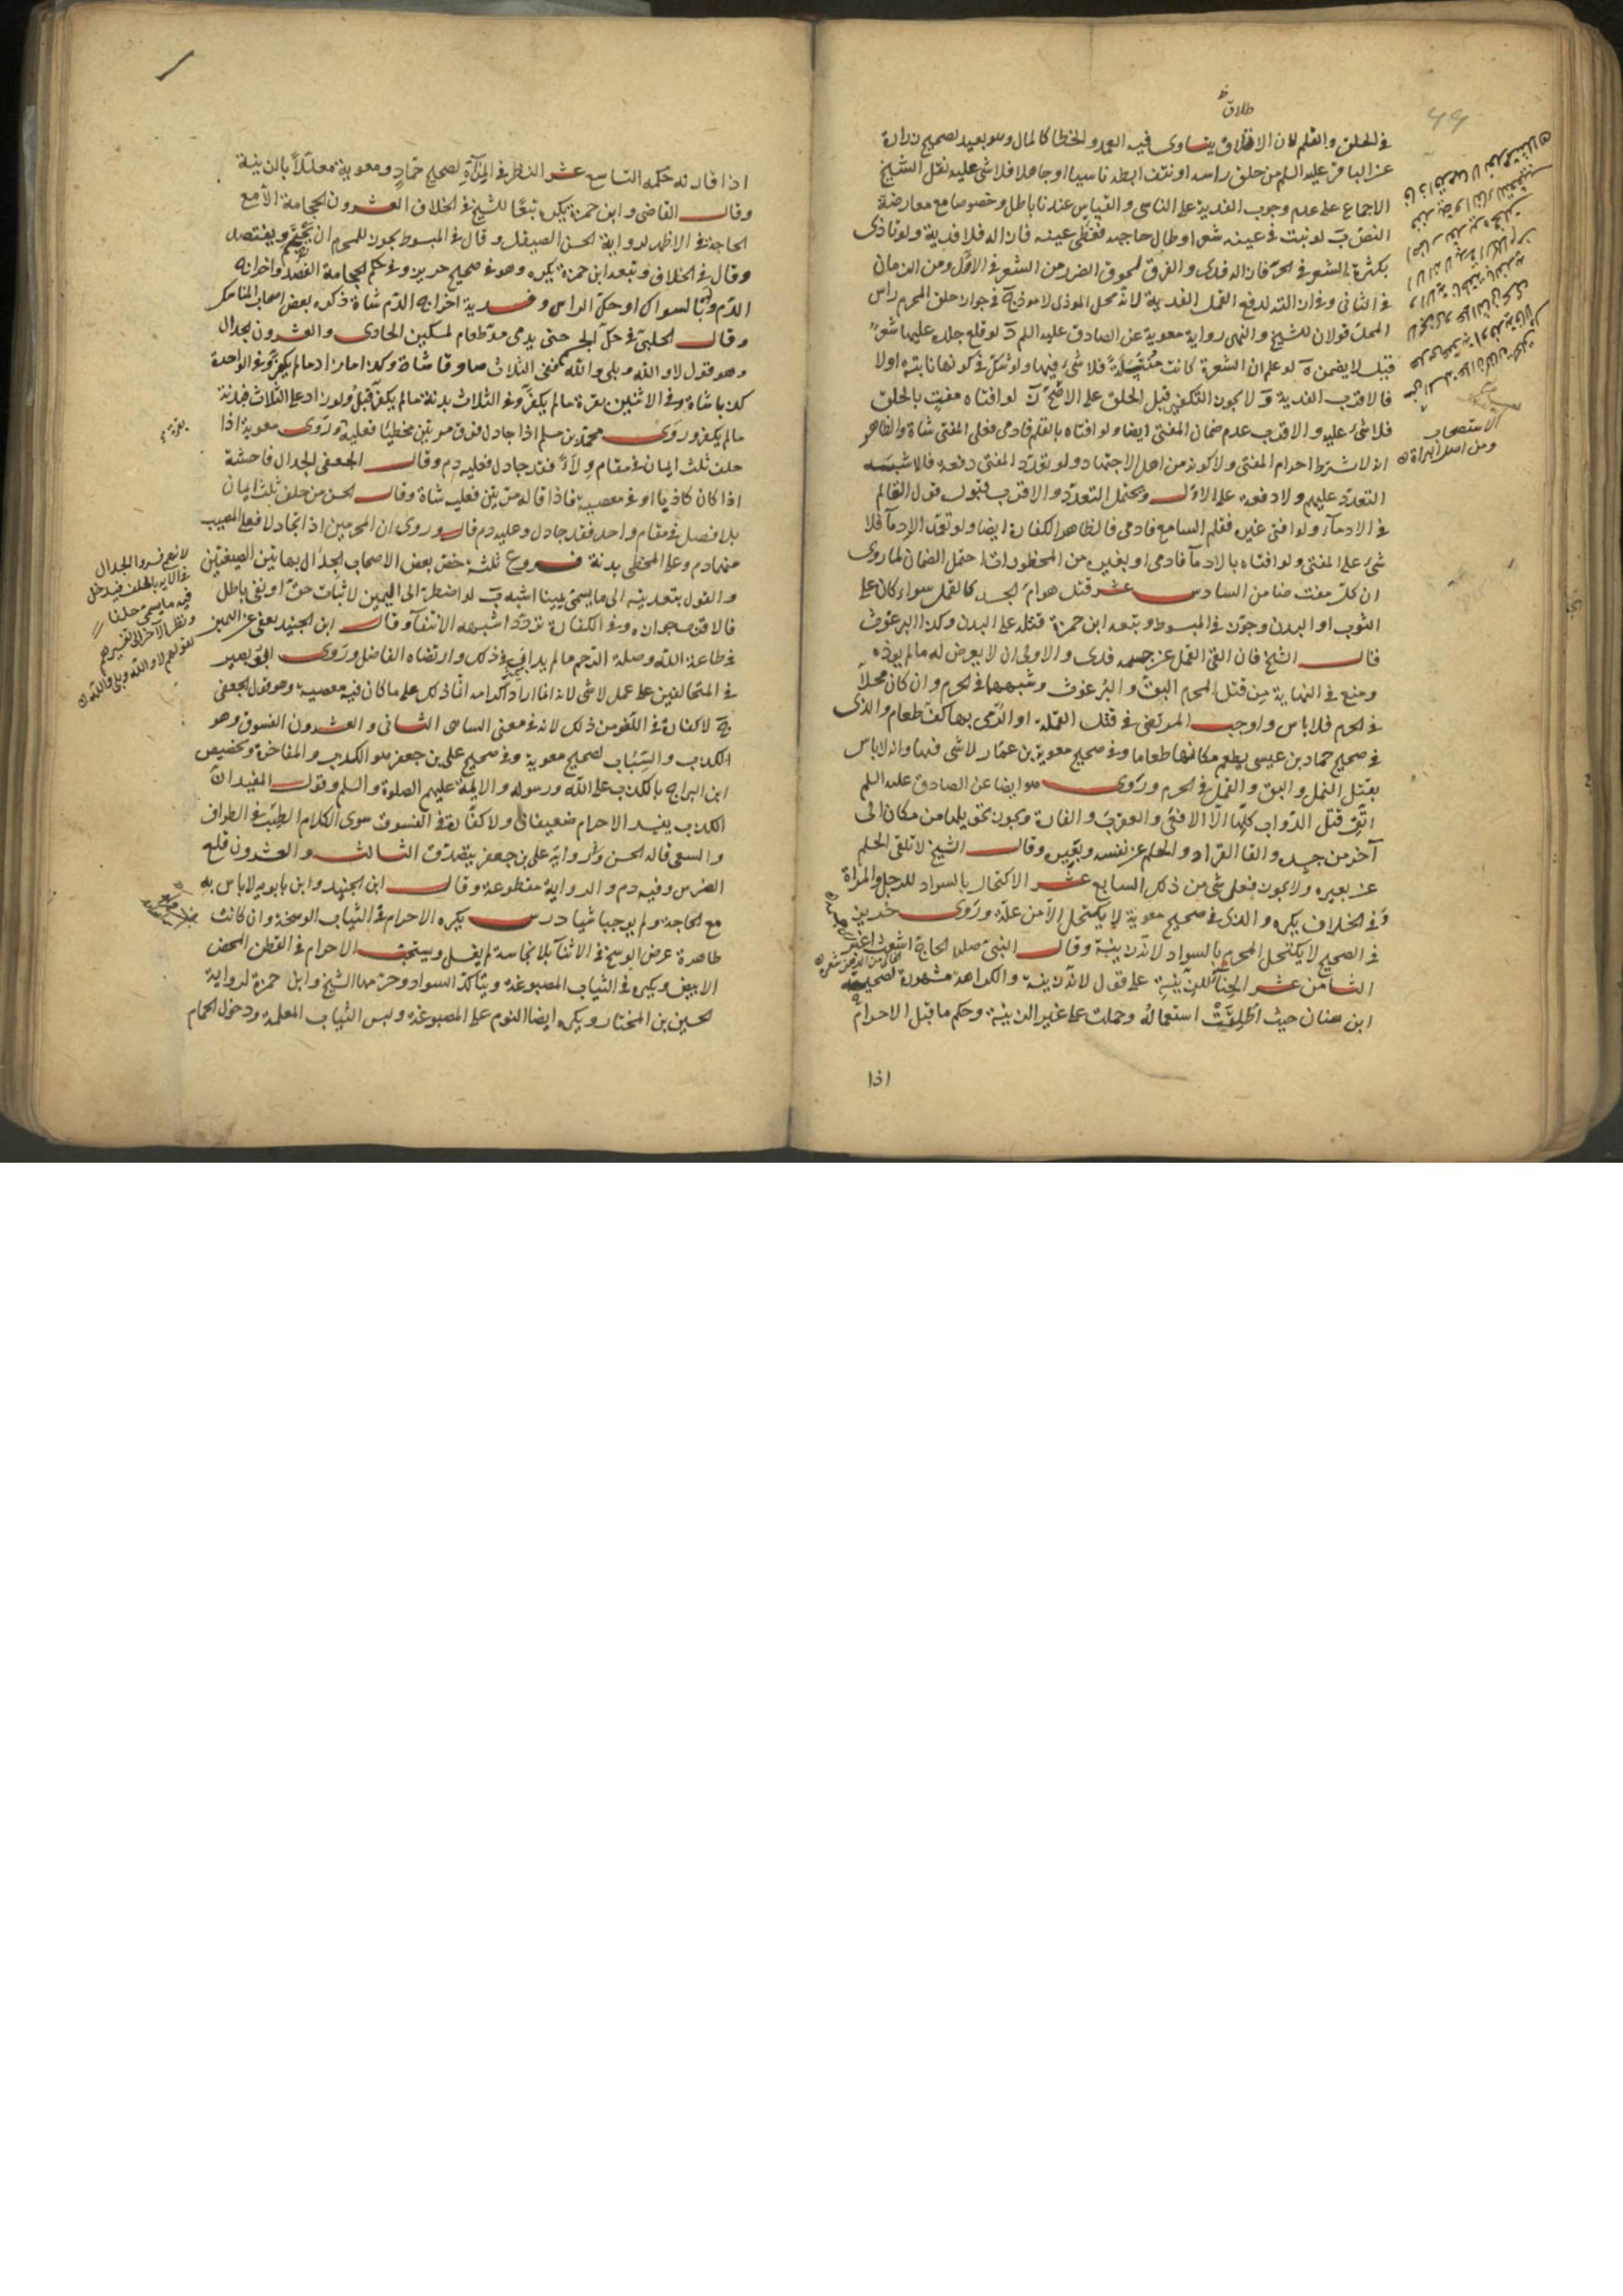 في الحلق والقلم لان الاتلاف يتساوى فيه العمد والخطا كالمال وهو بعيد لصحيح زرارة
عن الباقر عليه السلم من حلق راسه او نتف ابطه ناسيا او جاهلا فلا شى عليه نقل الشيخ
الاجماع على عدم وجوب الفدية على الناسى والقياس عندنا باطل وخصوصا مع معارضة
النص ب لو نبت في عينه شعر او طال حاجبه فغطى عينه فازاله فلا فدية ولو تاذى
بكثرة الشعر في الحر فازاله فدى والفرق لحوق الضرر من الشعر في الاول ومن الزمان
في الثانى وفى ازالته لدفع القمل الفدية لانه محل الموذى لا موذ ج في جواز حلق المحرم راس
المحل قولان للشيخ والنهى رواية معوية عن الصادق عليه السلم د لو قلع جلدة عليها شعر
قيل لا يضمن ه لو علم ان الشعرة كانت منسلة فلا شىء فيها ولو شك في كونها نابتة اولا
فالاقرب الفدية و لا يجوز التكفير قبل الحلق على الاصح ز لو افتاه مفت بالحلق
فلا شىء عليه والاقرب عدم ضمان المفتى ايضا ولو افتاه بالقلم فادمى فعلى المفتى شاة والظاهر
انه لا يشترط احرام المفتى ولا كونه من اهل الاجتهاد ولو تعدد المفتى دفعة فالاشبه
التعدد عليهم ولا دفعة على الاول ويحتمل التعدد والاقرب قبول قول القالم
في الادماء ولو افتى غيره فقلم السامع فادمى فالظاهر الكفارة ايضا ولو تعمد الادماء فلا
شىء على المفتى ولو افتاه بالادماء فادمى او بغيره من المحظورات احتمل الضمان لما روى
ان كل مفت ضامن السادس عشر قتل هوام الجسد كالقمل سواء كان على
الثوب او البدن وجوز في المبسوط وتبعه ابن حمزة قتله على البدن وكذا البرغوث
قال الشيخ فان القى القمل عن جسمه فدى والاولى ان لا يعرض له ما لم يوذه
ومنع في النهاية من قتل المحرم البق والبرغوث وشبههما في الحرم وان كان محلا
في الحرم فلا باس واوجب المرتضى في قتل القملة او الرمى بها كف طعام والذى
في صحيح حماد بن عيسى يطعم مكانها طعاما وفى صحيح معوية بن عمار لا شى فيها وانه لا باس
بقتل النمل والبق والقمل في الحرم وروى هو ايضا عن الصادق عليه السلم
اتق قتل الدواب كلها الا الافعى والعقرب والفارة ويجوز تحويلها من مكان الى
آخر من جسده والقا القراد والحلم عن نفسه وبعيره وقال الشيخ لا تلقى الحلم
عن بعيره ولا يجوز فعلى شى من ذلك السابع عشر الاكتحال بالسواد للرجل والمراة
وفى الخلاف يكره والذى في صحيح معوية لا يكتحل الا من علة وروى حريز
في الصحيح لا يكتحل المحرم بالسواد لانه زينة وقال النبى صلى الله الحاج اشعث اغبر
الثامن عشر الحناء للزينة على قول لانه زينة والكراهة مشهورة لصحيحة
ابن سنان حيث اطلقت استعماله وحملت على غير الزينة وحكم ما قبل الاحرام
اذا
اذا قارنه حكمه التاسع عشر النظر في المرآة لصحيح حماد ومعوية معللا بالزينة
وقال القاضى وابن حمزة يكره تبعا للشيخ في الخلاف العشرون الحجامة الا مع
الحاجة في الاظهر لرواية الحسن الصيقل وقال في المبسوط يجوز للمحرم ان يحتجم ويفتصد
وقال في الخلاف وتبعه ابن حمزة يكره وهو في صحيح حريز وفى حكم الحجامة الفصد واخراج
الدم ولو بالسواك او حك الراس وفدية اخراج الدم شاة ذكره بعض اصحاب المناسك
وقال الحلبى في حك الجسم حتى يدمى مد طعام لمسكين الحادى والعشرون الجدال
وهو قول لا والله وبلى والله ففى الثلاث صادقا شاة وكذا ما زاد ما لم يكفر وفى الواحدة
كذبا شاة وفى الاثنين بقرة ما لم يكفر وفى الثلاث بدنة ما لم يكفر قبل ولو زاد على الثلاث فبدنة
ما لم يكفر وروى محمد بن مسلم اذا جادل فوق مرتين مخطيا فعليه وروى معوية اذا
حلف ثلث ايمان في مقام ولاء فقد جادل فعليه دم وقال الجعفى الجدال فاحشة
اذا كان كاذبا او في معصية فاذا قاله مرتين فعليه شاة وقال الحسن من حلف ثلث ايمان
بلا فصل في مقام واحد فقد جادل وعليه دم قال وروى ان المحرمين اذا تجادلا فعلى المصيب
منهما دم وعلى المخطى بدنة فروع ثلثة خص بعض الاصحاب الجدال بهاتين الصيغتين
والقول بتعديته الى ما يسمى يمينا اشبه ب لو اضطر الى اليمين لاثبات حق او نفى باطل
فالاقرب جوازه وفى الكفارة تردد اشبهه الانتفاء وقال ابن الجنيد يعفى عن اليمين
في طاعة الله وصلة الرحم ما لم يداب في ذلك وارتضاه الفاضل وروى ابو بصير
في المتحالفين على عمل لا شى لانه انما اراد اكرامه انما ذلك على ما كان فيه معصية وهو قول الجعفى
ج لا كفارة في اللغو من ذلك لانه في معنى الساهى الثانى والعشرون الفسوق وهو
الكذب والسباب لصحيح معوية وفى صحيح على بن جعفر هو الكذب والمفاخرة وتخصيص
ابن البراج بالكذب على الله ورسوله والايمة عليهم الصلوة والسلم وقول المفيد ان
الكذب يفسد الاحرام ضعيفان ولا كفارة في الفسوق سوى الكلام الطيب في الطواف
والسعى قاله الحسن وفى رواية على بن جعفر يتصدق الثالث والعشرون قلع
الضرس وفيه دم والرواية مقطوعة وقال ابن الجنيد وابن بابويه لا باس به
مع الحاجة ولم يوجبا شيا درس يكره الاحرام في الثياب الوسخة وان كانت
طاهرة ولو عرض الوسخ في الاثناء بلا نجاسة لم يغسل ويستحب الاحرام في القطن المحض
الابيض ويكره في الثياب المصبوغة ويتاكد السواد وحرمها الشيخ وابن حمزة لرواية
الحسين بن المختار ويكره ايضا النوم على المصبوغة ولبس الثياب المعلمة ودخول الحمام
لانهم فسروا الجدال
في الاية بالحلف فيدخل
فيه ما يسمى حلفا
ونظر الآخر الى تفسيرهم
بقولهم لا والله وبلى والله